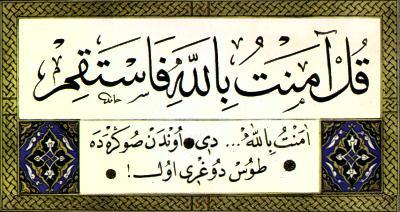 قُلْ آمَنْتُ بِاللّٰهِ فَاسْتَقِمْ
اٰمَنْتُ بِاللّٰهْ... دى، اُوندَنْ صوكْرَه دَه
طوسْ دوُغْرِى اولْ!